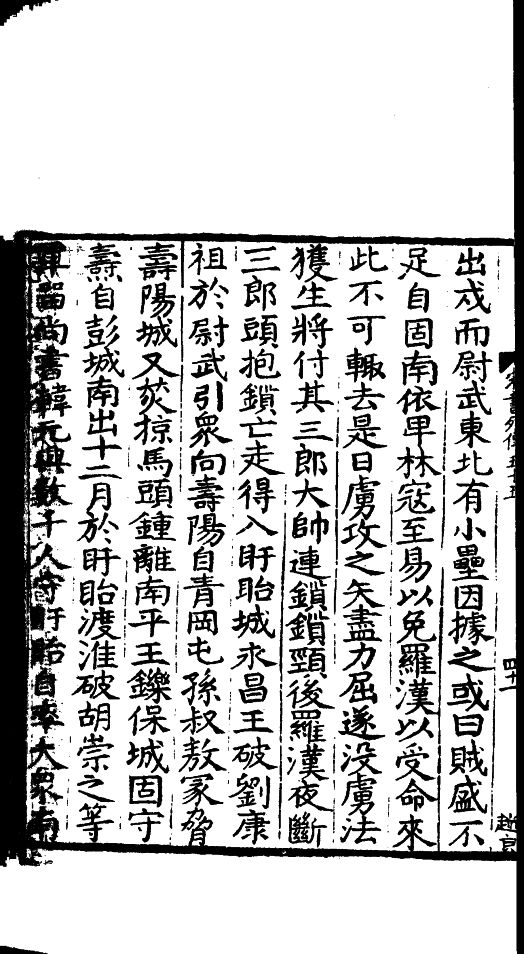 出戍而尉武東北有小壘因據之或曰賊盛不
足自固南依卑林寇至易以免羅漢以受命來
此不可輙去是日虜攻之矢盡力屈遂没虜法
獲生將付其三郎大帥連鎖鎖頸後羅漢夜斷
三郎頭抱鎖亡走得入盱眙城永昌王破劉康
祖於尉武引衆向壽陽自青岡屯孫叔敖冢脅
壽陽城又焚掠馬頭鍾離南平王鑠保城固守
燾自彭城南出十二月於盱眙渡淮破胡崇之等
軍留尚書韓元興數千人守盱眙自率大衆南
四十一